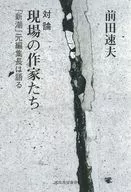 前田速夫
対論
現場の作家たち
「新潮」元編集長は語る